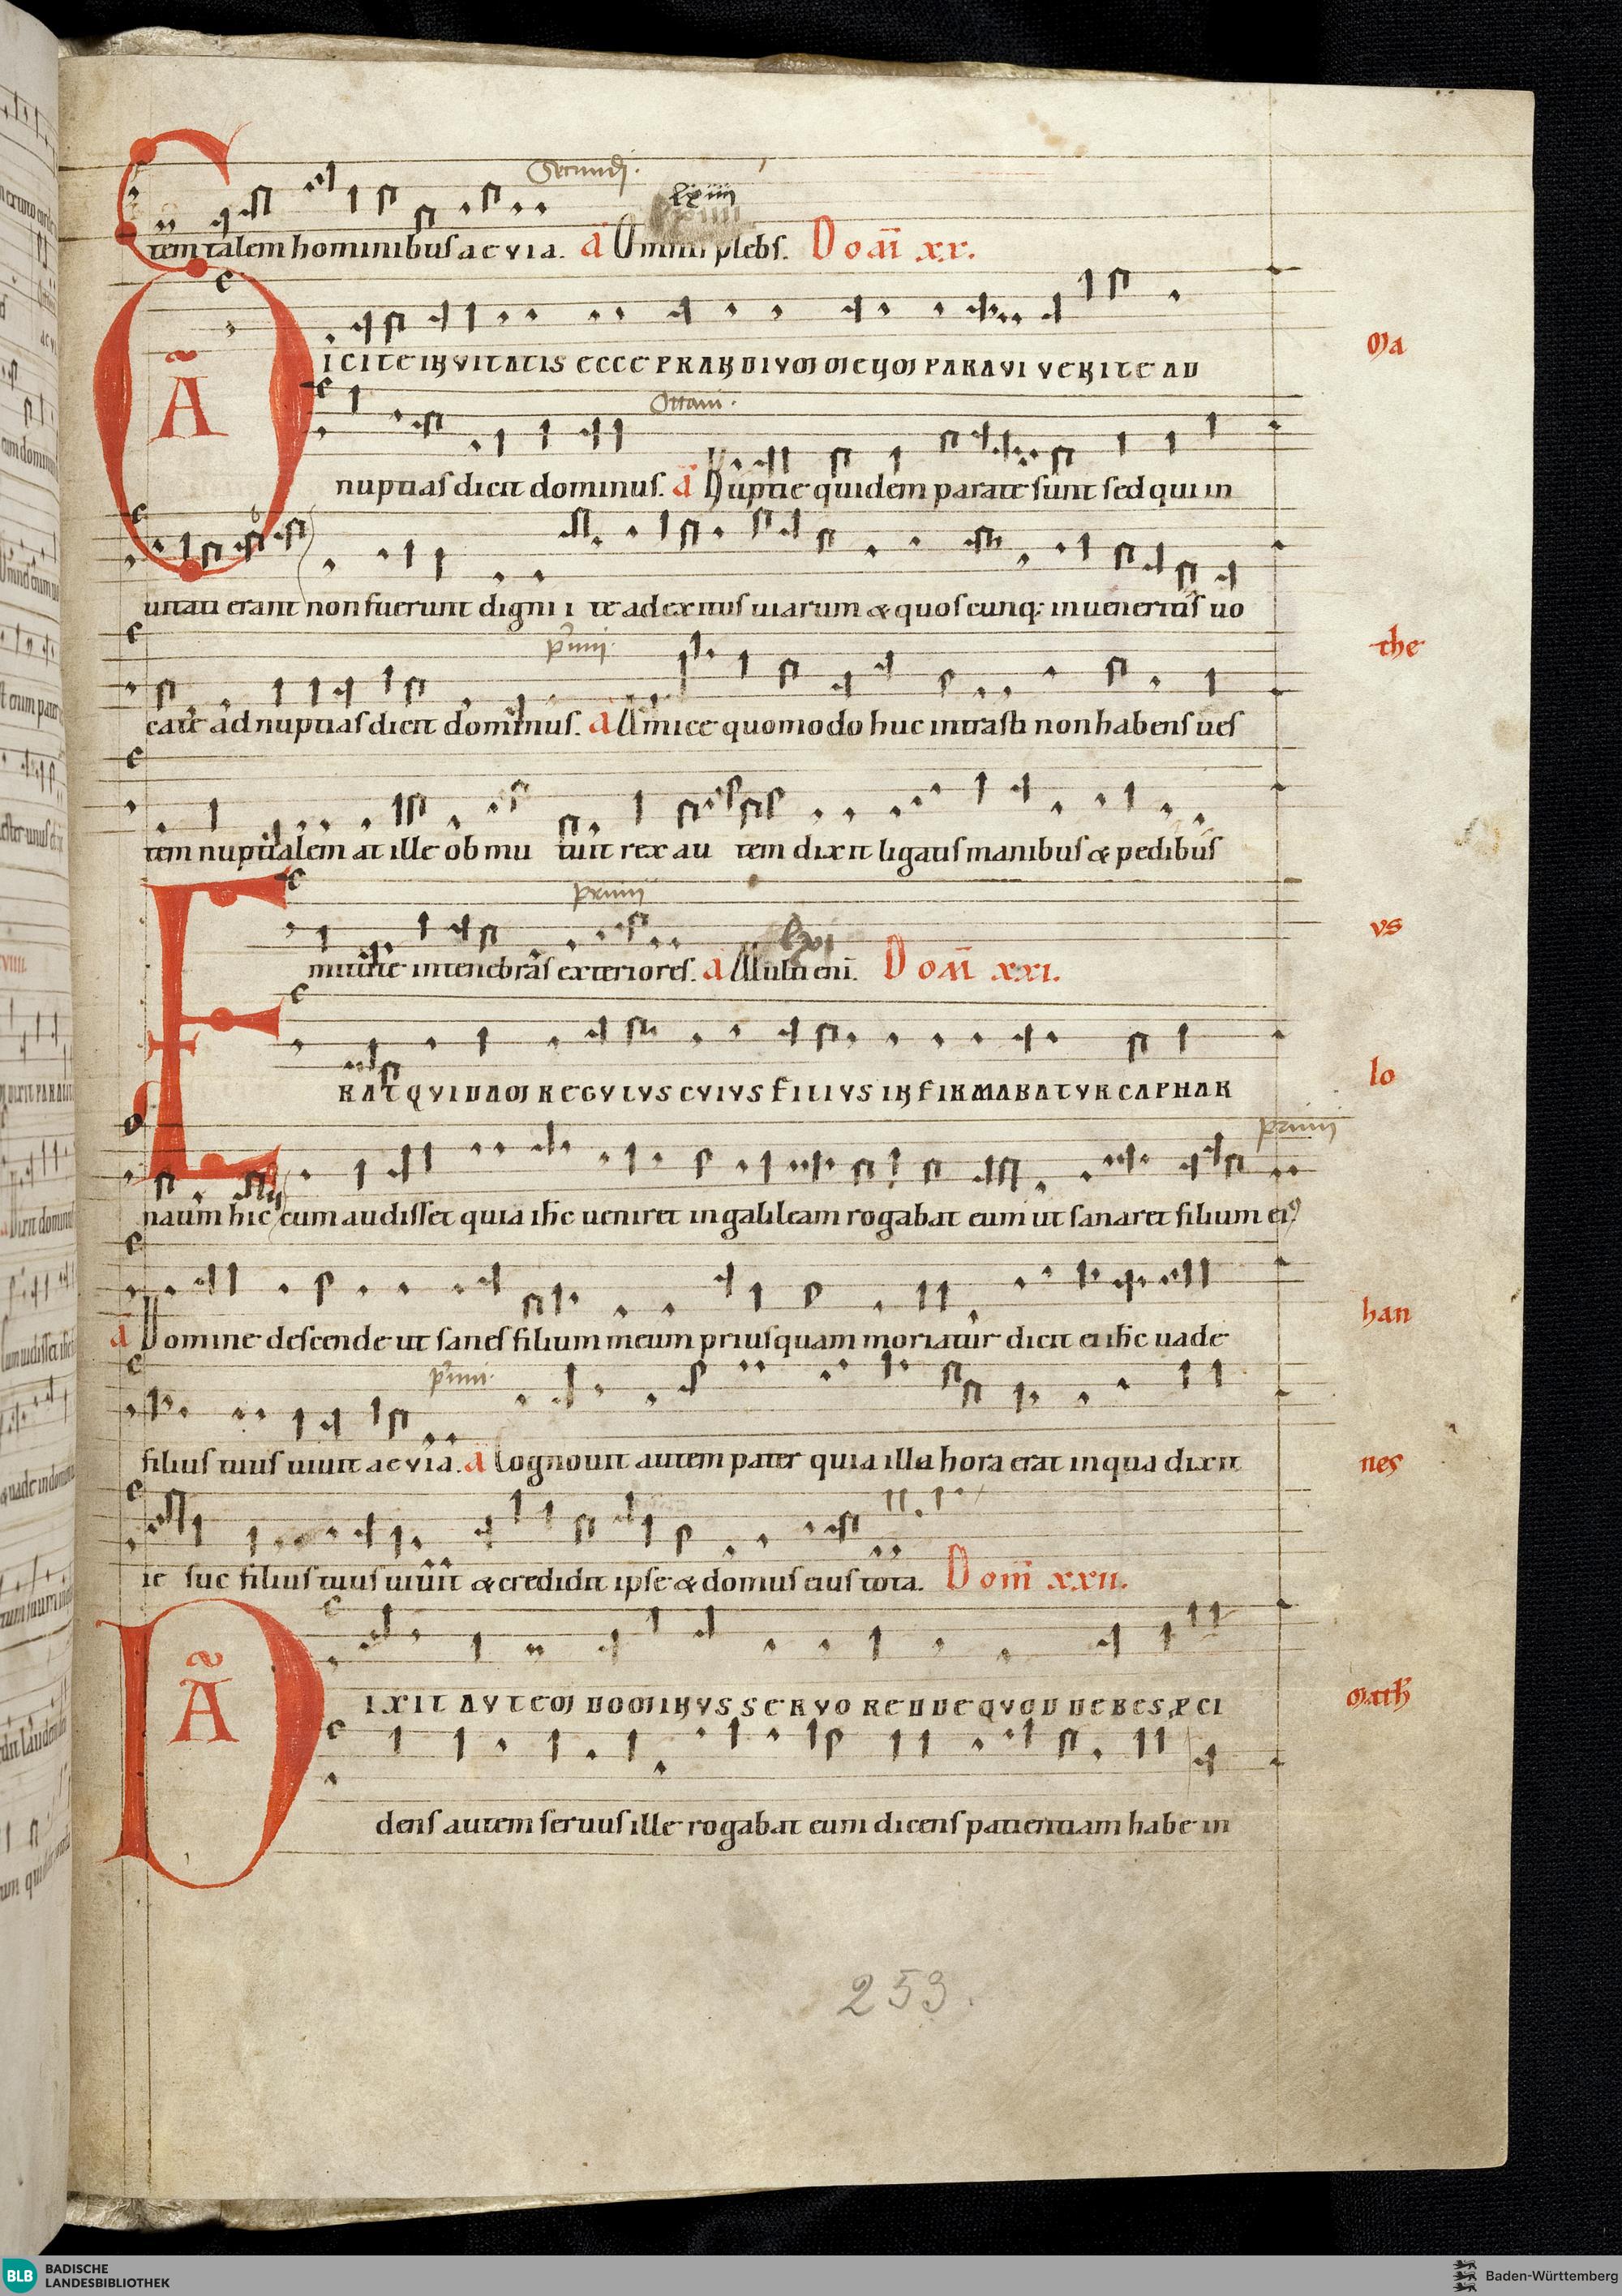 Secundi.
lxiiii
tem talem hominibus aevia. a Omnis plebs. Dom xx.
Ma
ã
ICITE INVITATIS ECCE PRANDIVM MEUM PARAVI VENITE AD
Octavi.
nuptias dicit dominus. a Nuptie quidem parate sunt sed qui in
uitati erant non fuerunt digni i te ad exitus uiarum & quoscunq; inueneritis uo
the
primi
cate ad nuptias dicit dominus. a Amice quomodo huc intrasti non habens ues
tem nuptialem at ille ob mu tuit rex au tem dixit ligatis manibus & pedibus
E
primi
lxvi
vs
mittite in tenebras exteriores. a Multi eni. Dom xxi.
RAT QVIDAM REGVLVS CVIVS FILIVS INFIRMABATVR CAPHAR
Io
primi
naum hic cum audisset quia ihc ueniret in galileam rogabat eum ut sanaret filium ei9
a Domine descende ut sanes filium meum priusquam moriatur dicit ei ihc uade
han
primi
filius tuus uiuit aevia. a Cognouit autem pater quia illa hora erat in qua dixit
nes
ic suc filius tuus uiuit & credidit ipse & domus eius tota. Dom xxii.
D ã
IXIT AVTEM DOMINVS SERVO REDDE QVOD DEBES PCI
Math
dens autem seruus ille rogabat eum dicens patientiam habe in
253.
BLB BADISCHE LANDESBIBLIOTHEK
Baden-Württemberg